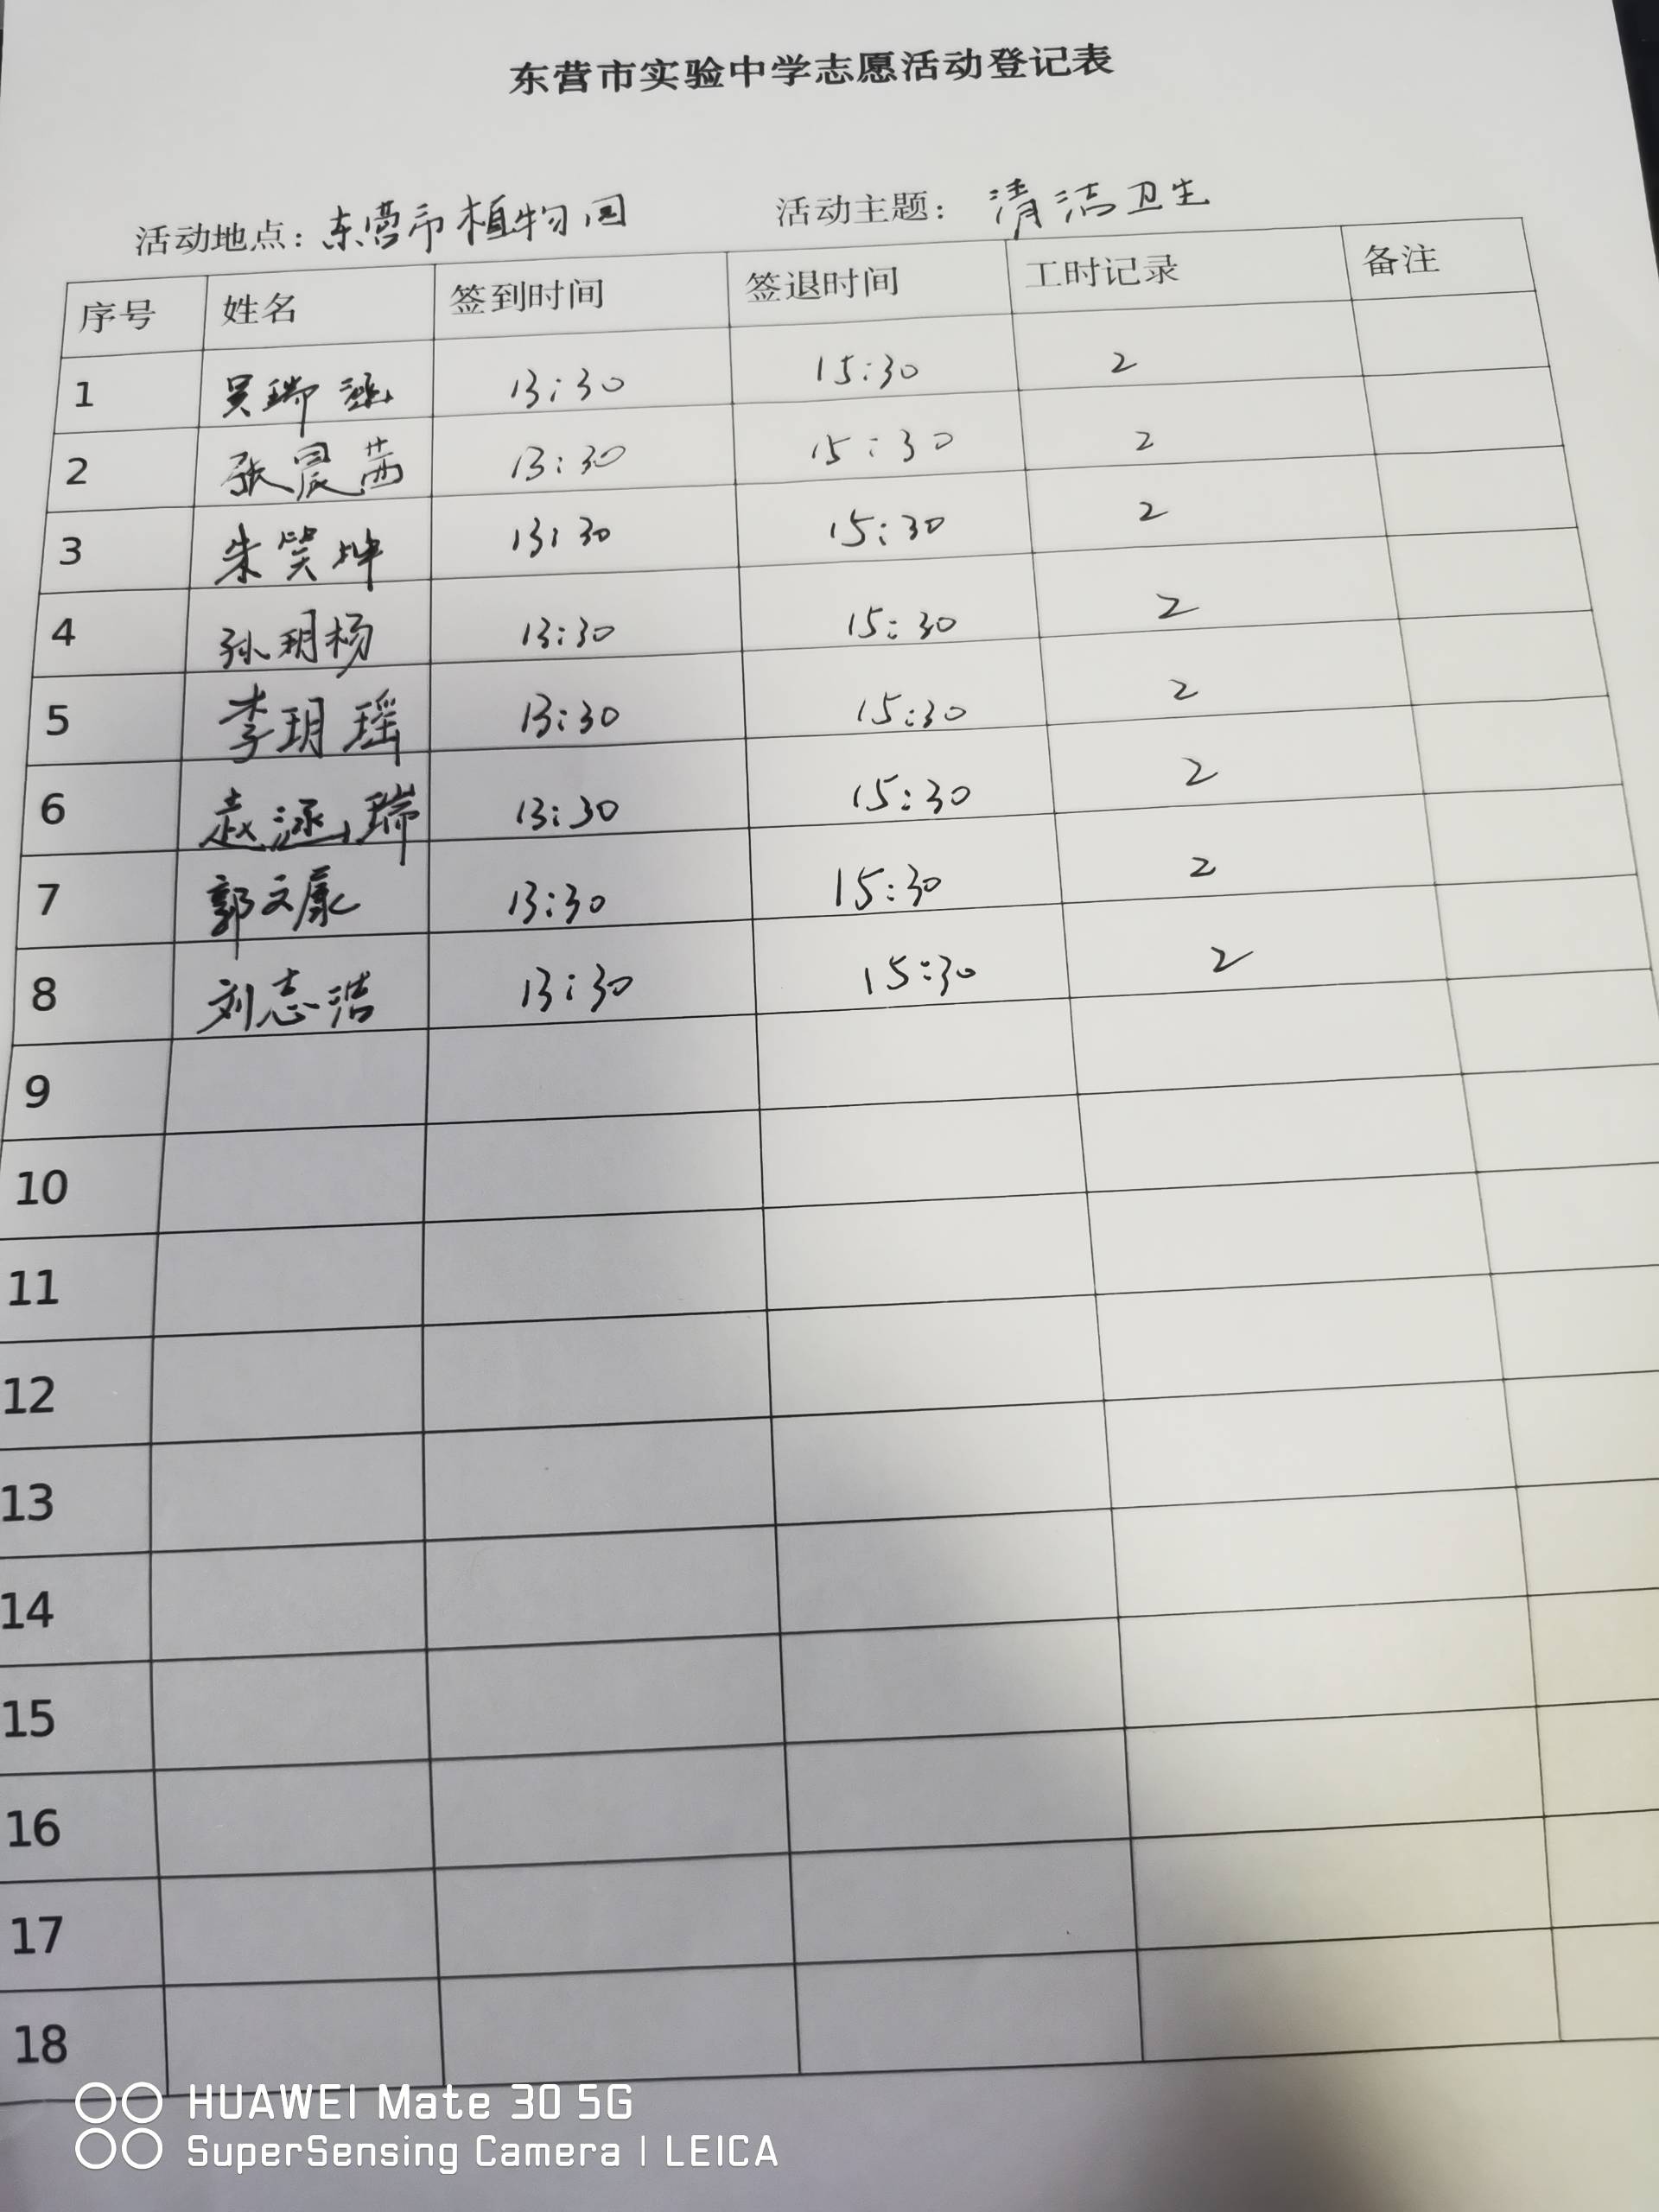 东营市实验中学志愿活动登记表
活动地点：东营市植物园 活动主题：清洁卫生
序号 姓名 签到时间 签退时间 工时记录 备注
1 吴瑞涵 13:30 15:30 2
2 张晨茜 13:30 15:30 2
3 朱笑坤 13:30 15:30 2
4 孙玥杨 13:30 15:30 2
5 李玥瑶 13:30 15:30 2
6 赵涵瑞 13:30 15:30 2
7 郭文康 13:30 15:30 2
8 刘志浩 13:30 15:30 2
9
10
11
12
13
14
15
16
17
18
HUAWEI Mate 30 5G
SuperSensing Camera | LEICA